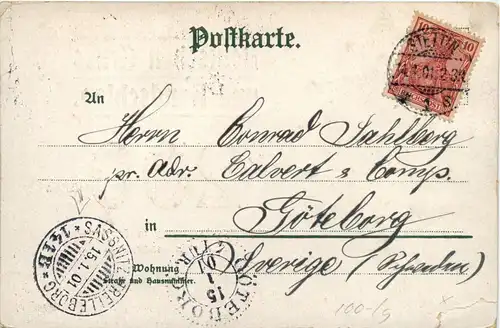 Postkarte.
10 10
STETTIN
.1.01. 2-3N
* 1 S
An
Herrn Conrad Sahlberg
pr. Adr. Calvert & Comp.
in Göteborg
Sverige (Schweden)
Wohnung
Straße und Hausnummer
SASSNITZ TRELLEBORG
15.1.01
* 141B *
GÖTEBORG
15
1
01
100-/9